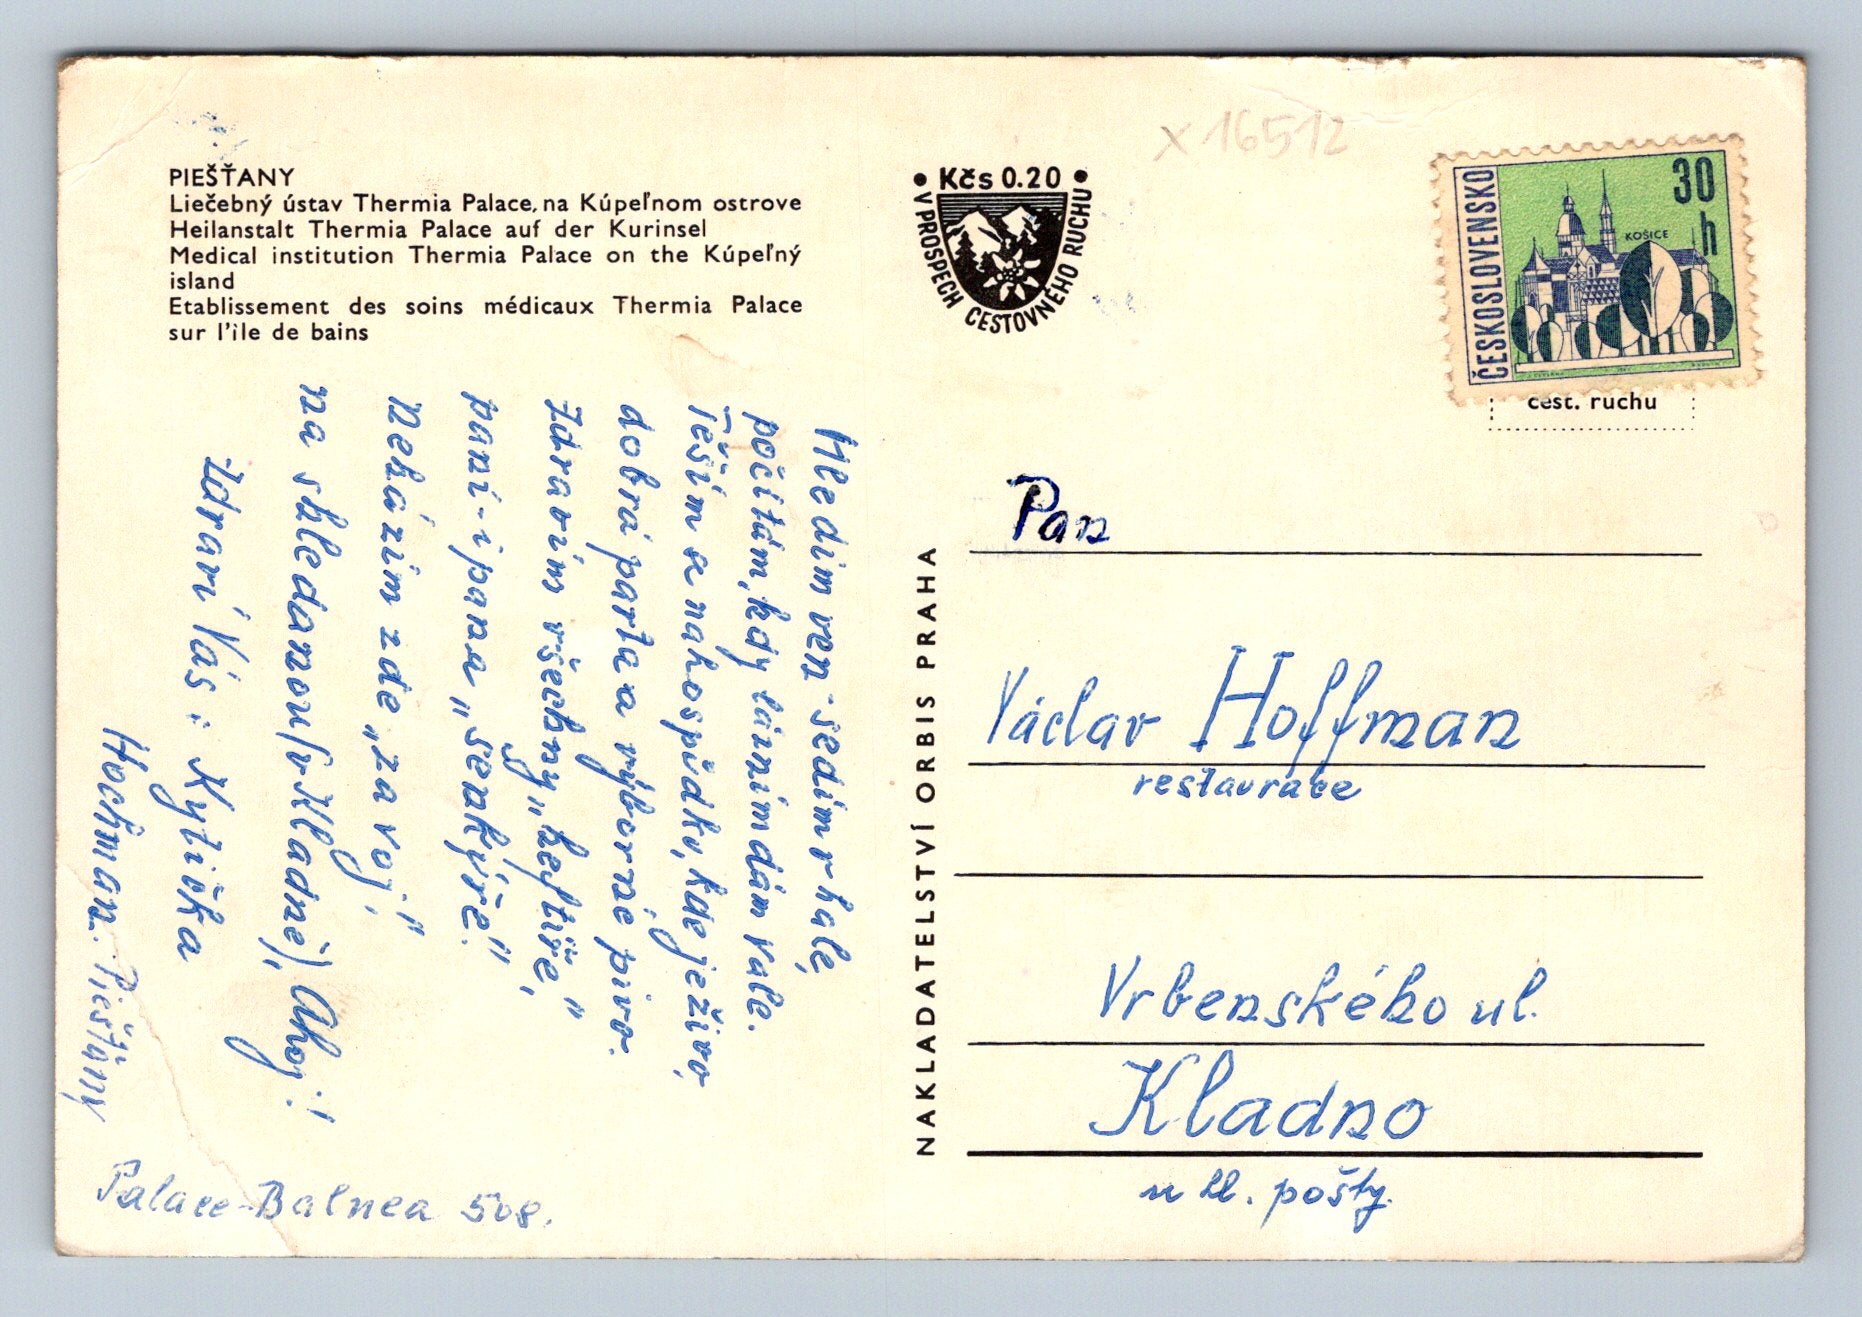 x 16512
PIEŠŤANY
Liečebný ústav Thermia Palace, na Kúpeľnom ostrove
Heilanstalt Thermia Palace auf der Kurinsel
Medical institution Thermia Palace on the Kúpeľný
island
Etablissement des soins médicaux Thermia Palace
sur l'ile de bains
Kčs 0.20
V PROSPECH CESTOVNÉHO RUCHU
ČESKOSLOVENSKO
30
h
KOŠICE
cest. ruchu
Hledím ven - sedím v hale,
počítám, kdy lázním dám vale.
Těším se na hospůdku, kde je živo,
dobrá parta a výborné pivo.
Zdravím všechny „kejtíře,"
paní - i pana „šenkýře."
Nekázím zde „za voj."
na shledanou (v Kladně), Ahoj!
Zdraví Vás: Kytička
Hochman. Piešťany
Palace-Balnea 508.
NAKLADATELSTVÍ ORBIS PRAHA
Pan
Václav Hoffman
restaurace
Vrbenského ul.
Kladno
u hl. pošty.